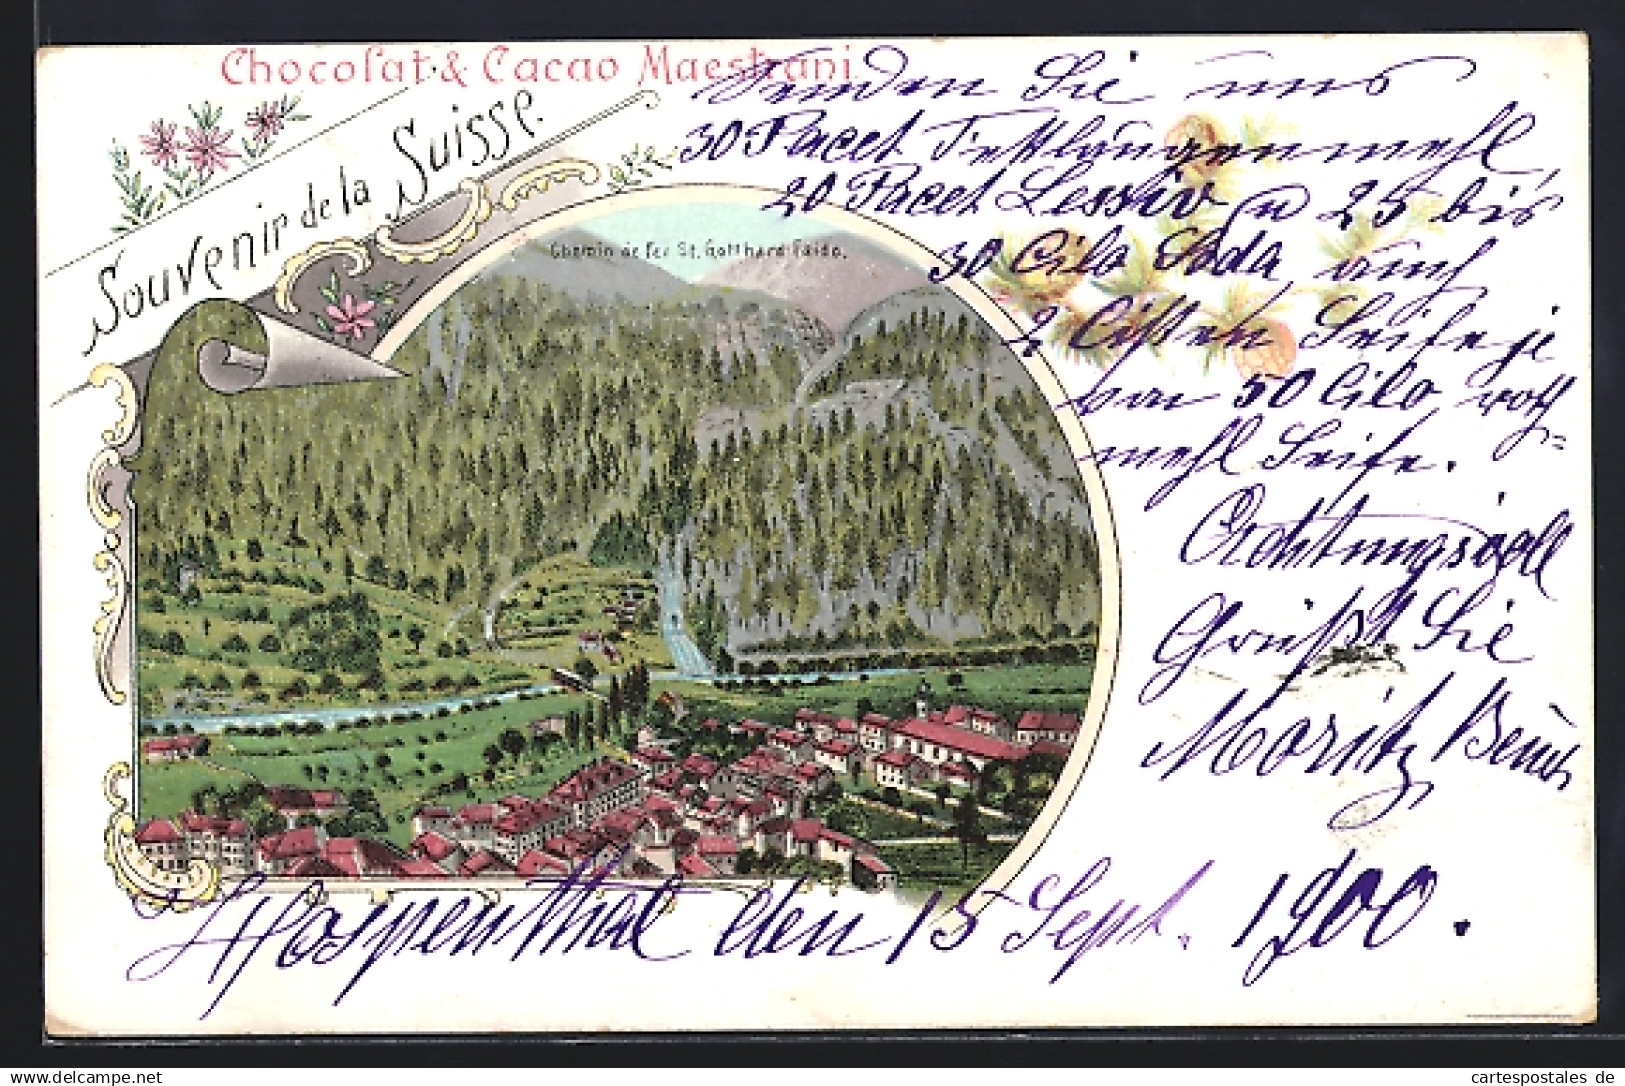 Chocolat & Cacao Maestrani
Souvenir de la Suisse.
Chemin de fer St. Gotthard-Faido.
Senden Sie uns
30 Pacet Fettlaugenmehl,
20 Pacet Lessiv u 25 bis
30 Cilo Soda auch
2 Cisten Seife je
von 50 Cilo
mehl Seife.
Achtungsvoll
Grüßt Sie
Moritz
Hospenthal den 15 Sept. 1900.
www.cartespostales.de